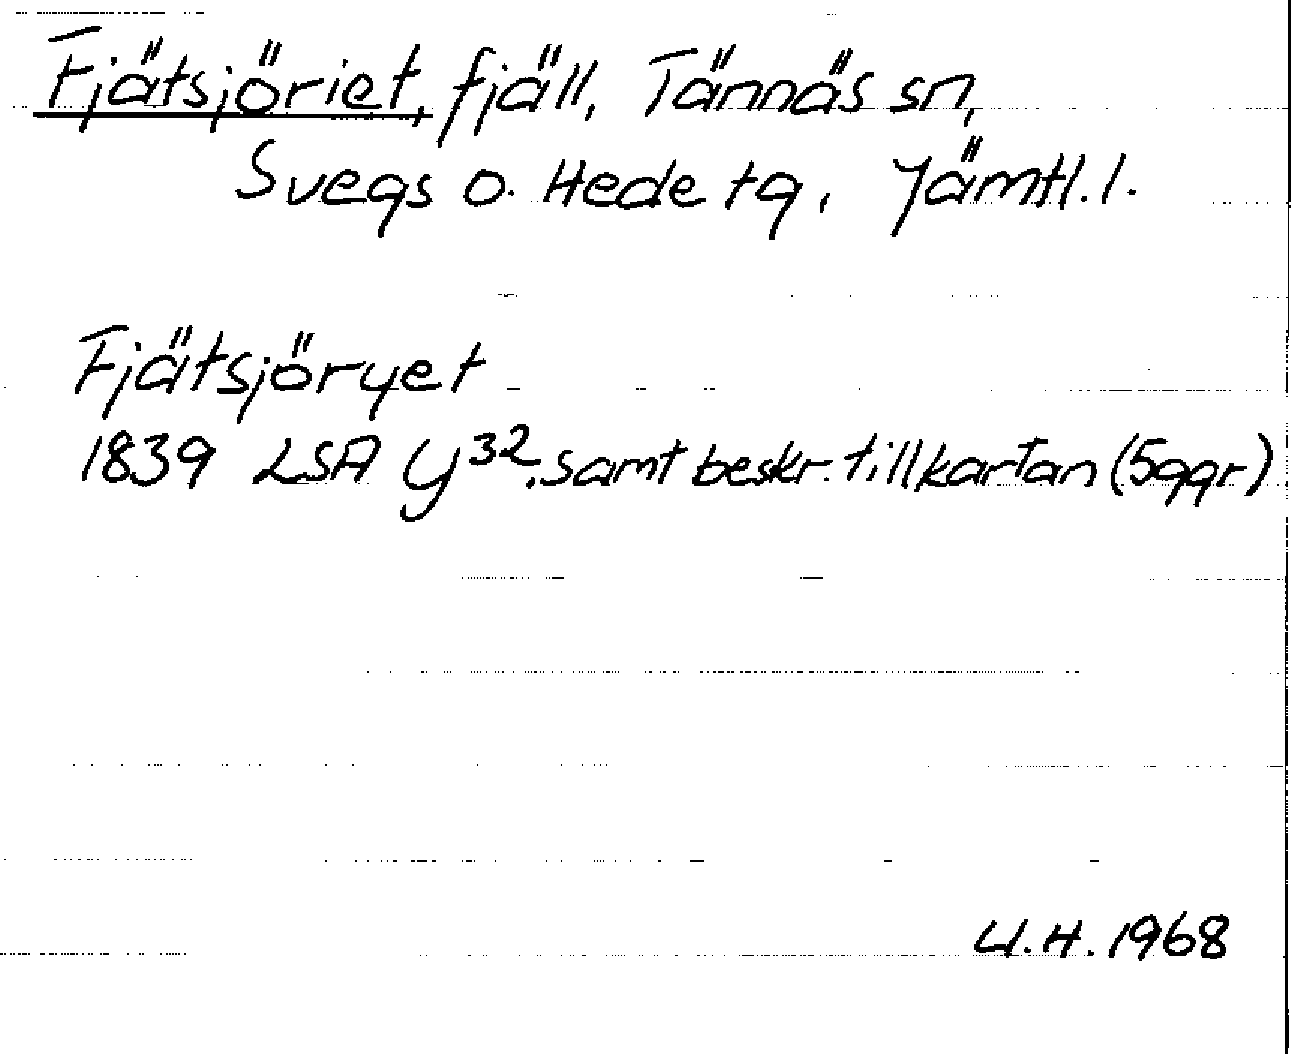 Fjätsjöriet, fjäll, Tännäs sn,
Svegs o. Hede tg, Jämtl. l.
Fjätsjöryet
1839 LSA Y³². samt beskr. till kartan (5 ggr)
U.H. 1968